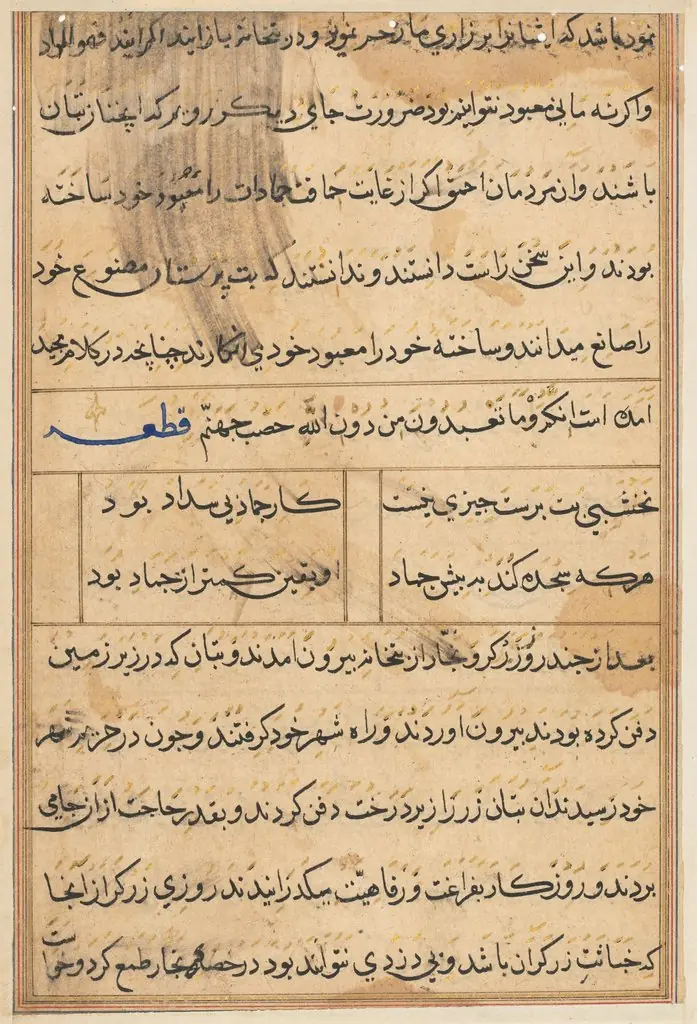 نمود باشد که ایشانرا بر زاری ما رحم نموده و در بتخانه باز ایند اکر ایند فهو المراد
واکرنه مابی معبود نتوانیم بود ضرورت جای دیکر رویم که اینجا بتان
باشند وان مردمان احمق اکر از غایت حماقت جمادات را معبود خود ساخته
بودند و این سخن راست دانستند و ندانستند که بت پرستان مصنوع خود
را صانع میدانند و ساخته خود را معبود خود می انکارند چنانچه در کلام مجید
امده است انکم وما تعبدون من دون الله حصب جهنم قطعه
نخشبی بت برست جیزی نیست کار جماد بی سداد بود
هرکه سجده کند به بیش جماد او بیقین کمتر از جماد بود
بعد از جند روز زرکر و نجار از بتخانه بیرون امدند و بتان که در زیر زمین
دفن کرده بودند بیرون اوردند و راه شهر خود کرفتند و جون در حریم شهر
خود رسیدند ان بتان زر را زیر درخت دفن کردند و بقدر حاجت ازان جامی
بردند و روزکار بفراغت و رفاهیت میکدرانیدند روزی زرکر از آنجا
که خباثت زرکران باشد و بی دزدی نتوانند بود در حصه نجار طمع کرد و خواست